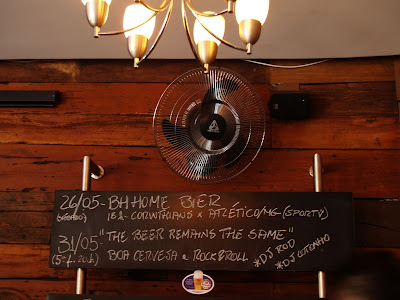 26/05 - BH HOME BIER
(SÁBADO) 18h - CORINTHIANS x ATLÉTICO/MG (SPORTV)
31/05 - "THE BEER REMAINS THE SAME"
(5ª f. 20h) BOA CERVEJA e ROCK & ROLL
*DJ ROD
*DJ COTONHO